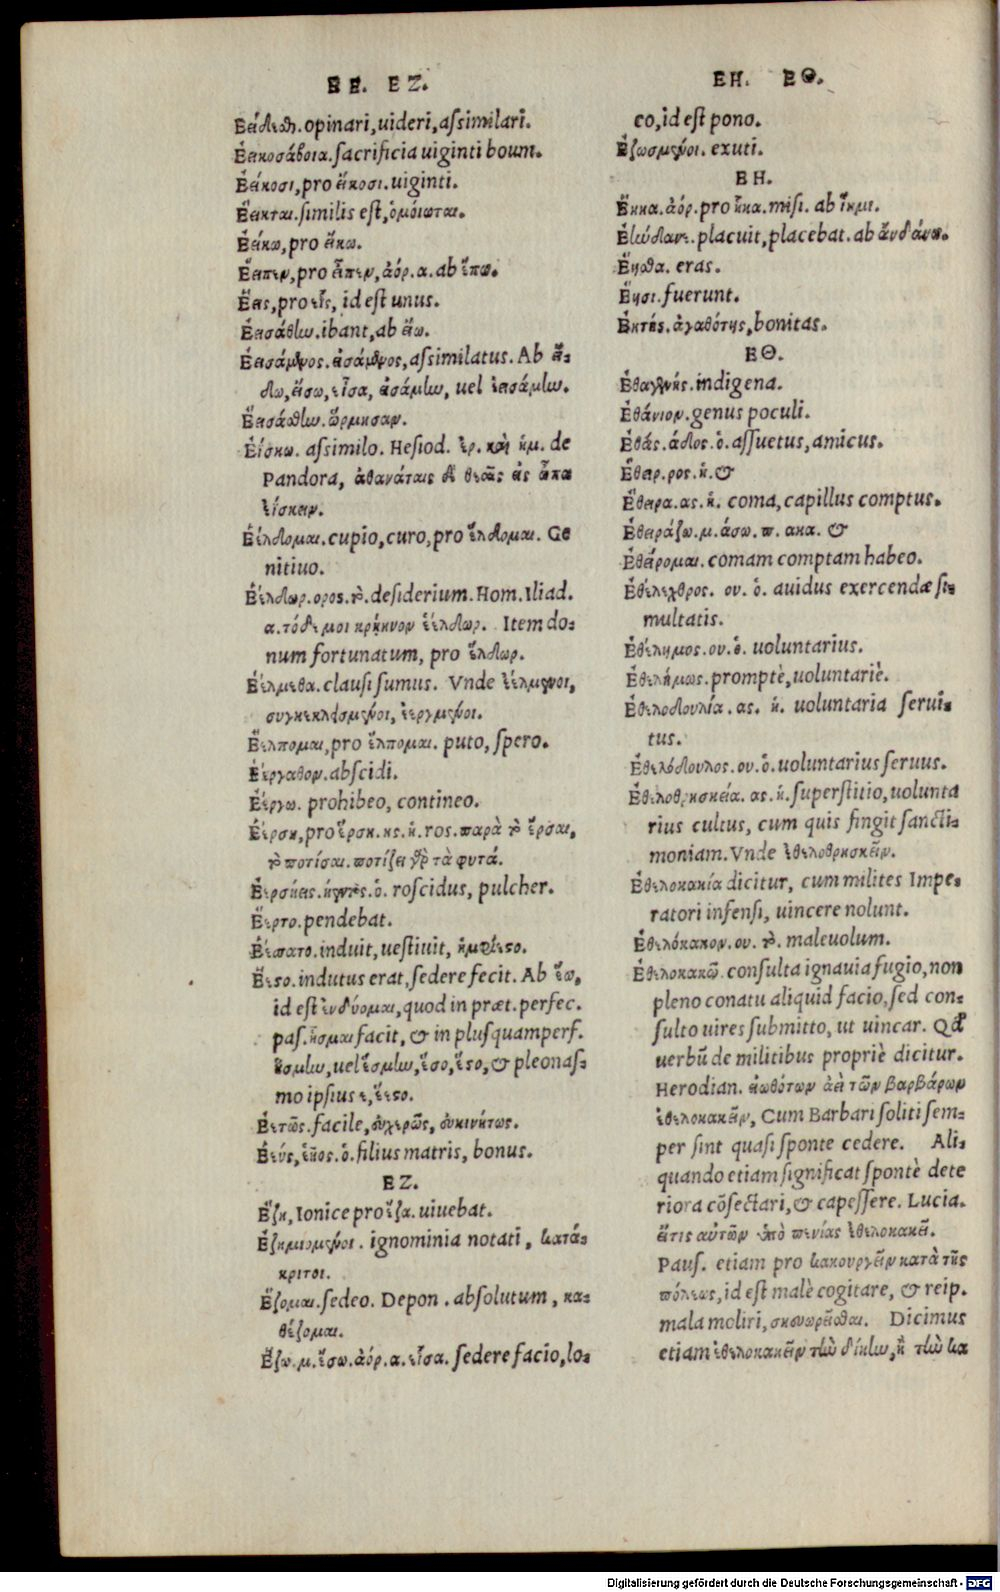 ΕΕ. ΕΖ.
Ἐείδεσθαι. opinari, uideri, aſsimilari.
Ἐεικοσάβοια. ſacrificia uiginti boum.
Ἐείκοσι, pro εἴκοσι. uiginti.
Ἔεικται. ſimilis eſt, ὁμοίωται.
Ἐείκω, pro εἴκω.
Ἔειπεν, pro εἶπεν, ἀόρ. α. ab ἔπω.
Ἕεις, pro εἷς, id eſt unus.
Ἐεισάσθην. ibant, ab εἴω.
Ἐεισάμενος. εἰσάμενος, aſsimilatus. Ab εἴ-
δω, εἴσω, εἶσα, εἰσάμην, uel ἐεισάμην.
Ἐεισάσθην. ὥρμησαν.
Ἐΐσκω. aſsimilo. Heſiod. ἔρ. καὶ ἡμ. de
Pandora, ἀθανάταις δὲ θεαῖς εἰς ὦπα
ἐΐσκειν.
Ἐέλδομαι. cupio, curo, pro ἔλδομαι. Ge
nitiuo.
Ἐέλδωρ. ορος. τὸ. deſiderium. Hom. Iliad.
α. τόδε μοι κρήηνον ἐέλδωρ. Item do-
num fortunatum, pro ἔλδωρ.
Ἐέλμεθα. clauſi ſumus. Vnde ἐέλμενοι,
συγκεκλεισμένοι, ἐεργμένοι.
Ἐέλπομαι, pro ἔλπομαι. puto, ſpero.
Ἐέργαθον. abſcidi.
Ἐέργω. prohibeo, contineo.
Ἐέρση, pro ἔρση. ης. ἡ. ros. παρὰ τὸ ἔρσαι,
τὸ ποτίσαι. ποτίζει γὰρ τὰ φυτά.
Ἐερσήεις. ήεντος. ὁ. roſcidus, pulcher.
Ἔερτο. pendebat.
Ἑέσατο. induit, ueſtiuit, ἠμφίεστο.
Ἕεστο. indutus erat, ſedere fecit. Ab ἕω,
id eſt ἐνδύομαι, quod in præt. perfec.
paſ. ἧσμαι facit, & in pluſquamperf.
ἥσμην, uel ἕσμην, ἕσο, ἕστο, & pleonaſ-
mo ipſius ε, ἕεστο.
Ἐετῶς. facile, εὐχερῶς, εὐκινήτως.
Ἐεύς, ἐῆος. ὁ. filius matris, bonus.
ΕΖ.
Ἔζη, Ionice pro ἔζα. uiuebat.
Ἐζημιομένοι. ignominia notati, κατά-
κριτοι.
Ἕζομαι. ſedeo. Depon. abſolutum, κα-
θέζομαι.
Ἕζω. μ. ἕσω. ἀόρ. α. εἷσα. ſedere facio, lo-
ΕΗ. ΕΘ.
co, id eſt pono.
Ἐζωσμένοι. exuti.
ΕΗ.
Ἕηκα. ἀόρ. pro ἧκα. miſi. ab ἵημι.
Ἑήνδανε. placuit, placebat. ab ἁνδάνω.
Ἔησθα. eras.
Ἔησι. fuerunt.
Ἐητές. ἀγαθότης, bonitas.
ΕΘ.
Ἐθαγενής. indigena.
Ἐθάνιον. genus poculi.
Ἐθάς. άδος. ὁ. aſſuetus, amicus.
Ἔθειρ. ρος. ἡ. &
Ἔθειρα. ας. ἡ. coma, capillus comptus.
Ἐθειράζω. μ. άσω. π. ακα. &
Ἐθείρομαι. comam comptam habeo.
Ἐθέλεχθρος. ου. ὁ. auidus exercendæ ſi-
multatis.
Ἐθέλημος. ου. ὁ. uoluntarius.
Ἐθελήμως. promptè, uoluntariè.
Ἐθελοδουλεία. ας. ἡ. uoluntaria ſerui-
tus.
Ἐθελόδουλος. ου. ὁ. uoluntarius ſeruus.
Ἐθελοθρησκεία. ας. ἡ. ſuperſtitio, uolunta
rius cultus, cum quis fingit ſancti-
moniam. Vnde ἐθελοθρησκεῖν.
Ἐθελοκακία dicitur, cum milites Impe-
ratori infenſi, uincere nolunt.
Ἐθελόκακον. ου. τὸ. maleuolum.
Ἐθελοκακῶ. conſulta ignauia fugio, non
pleno conatu aliquid facio, ſed con-
ſulto uires ſubmitto, ut uincar. Qđ
uerbũ de militibus propriè dicitur.
Herodian. εἰωθότων ἀεὶ τῶν βαρβάρων
ἐθελοκακεῖν, Cum Barbari ſoliti ſem-
per ſint quaſi ſponte cedere. Ali-
quando etiam ſignificat ſpontè dete
riora cõſectari, & capeſſere. Lucia.
εἴτις αὐτῶν ὑπὸ πενίας ἐθελοκακεῖ.
Pauſ. etiam pro κακουργεῖν κατὰ τῆς
πόλεως, id eſt malè cogitare, & reip.
mala moliri, σκευωρεῖσθαι. Dicimus
etiam ἐθελοκακεῖν τὴν δίκην, ἢ τὴν κα